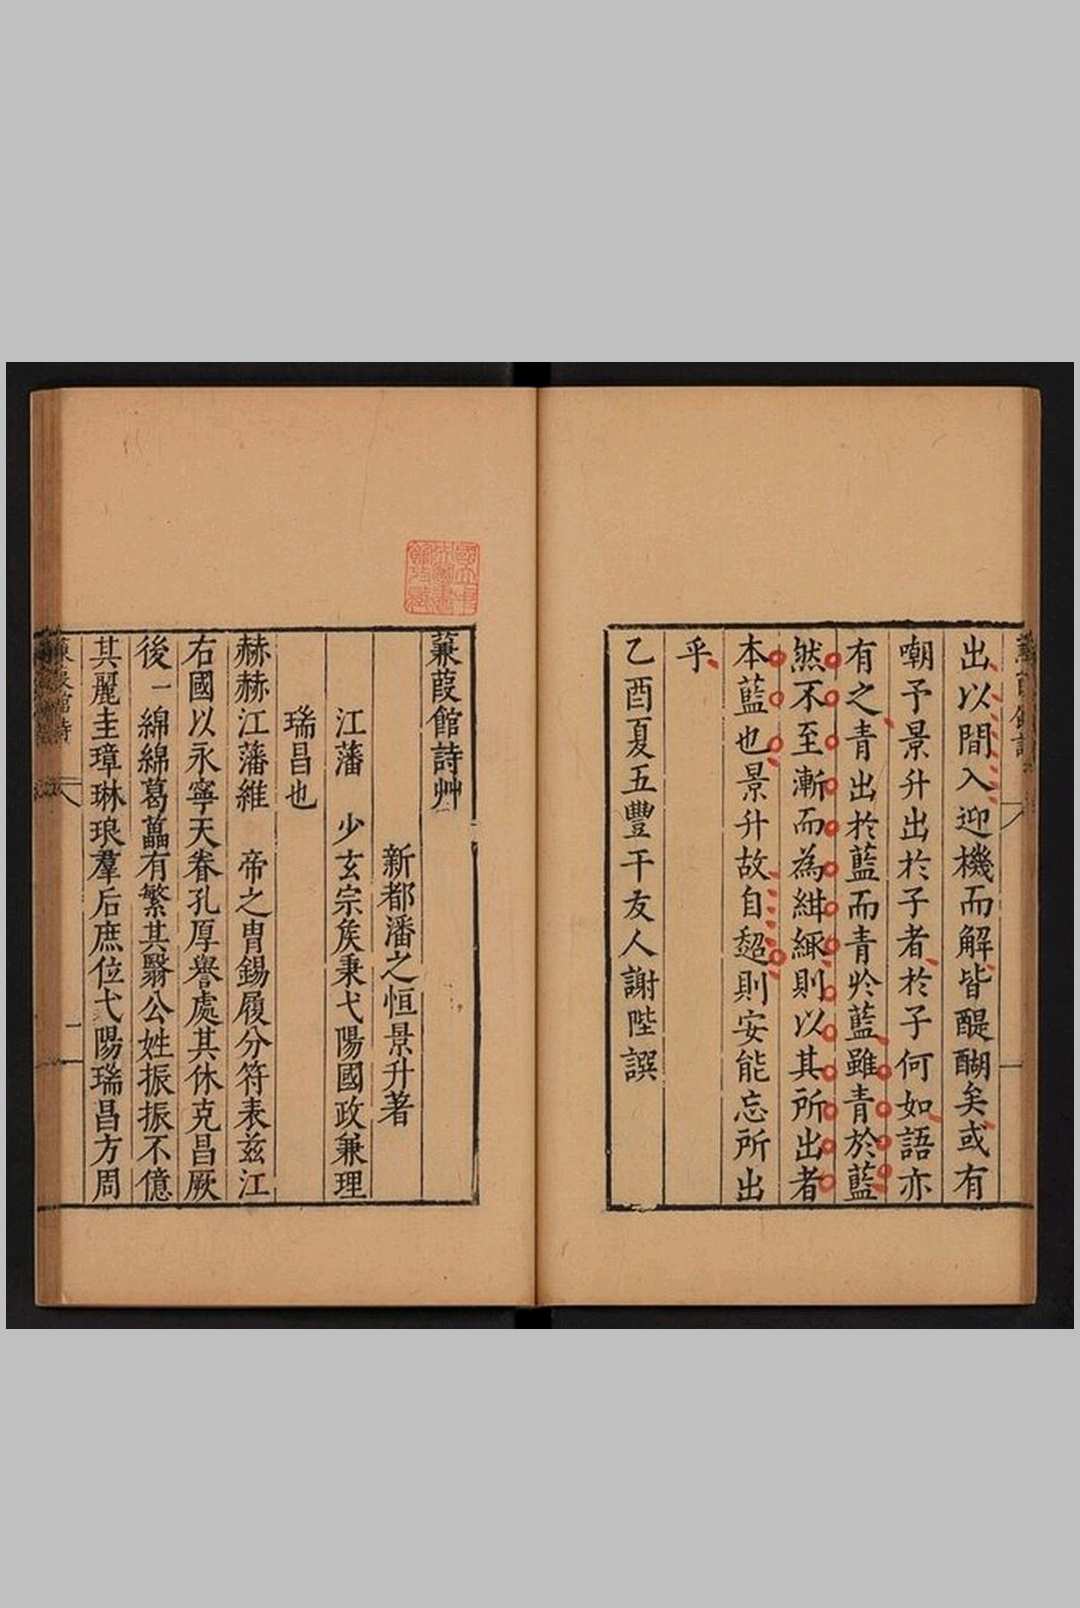 出以間入迎機而解皆醍醐矣或有
嘲予景升出於子者於子何如語亦
有之青出於藍而青於藍雖青於藍
然不至漸而為紺緅則以其所出者
本藍也景升故自超則安能忘所出
乎
乙酉夏五豐干友人謝陛譔
蒹葭館詩艸
新都潘之恒景升著
江藩 少玄宗矦秉弋陽國政兼理
瑞昌也
赫赫江藩維 帝之冑錫履分符表茲江
右國以永寧天眷孔厚譽處其休克昌厥
後一 綿綿葛藟有繁其翳公姓振振不億
其麗圭璋琳琅羣后庶位弋陽瑞昌方周